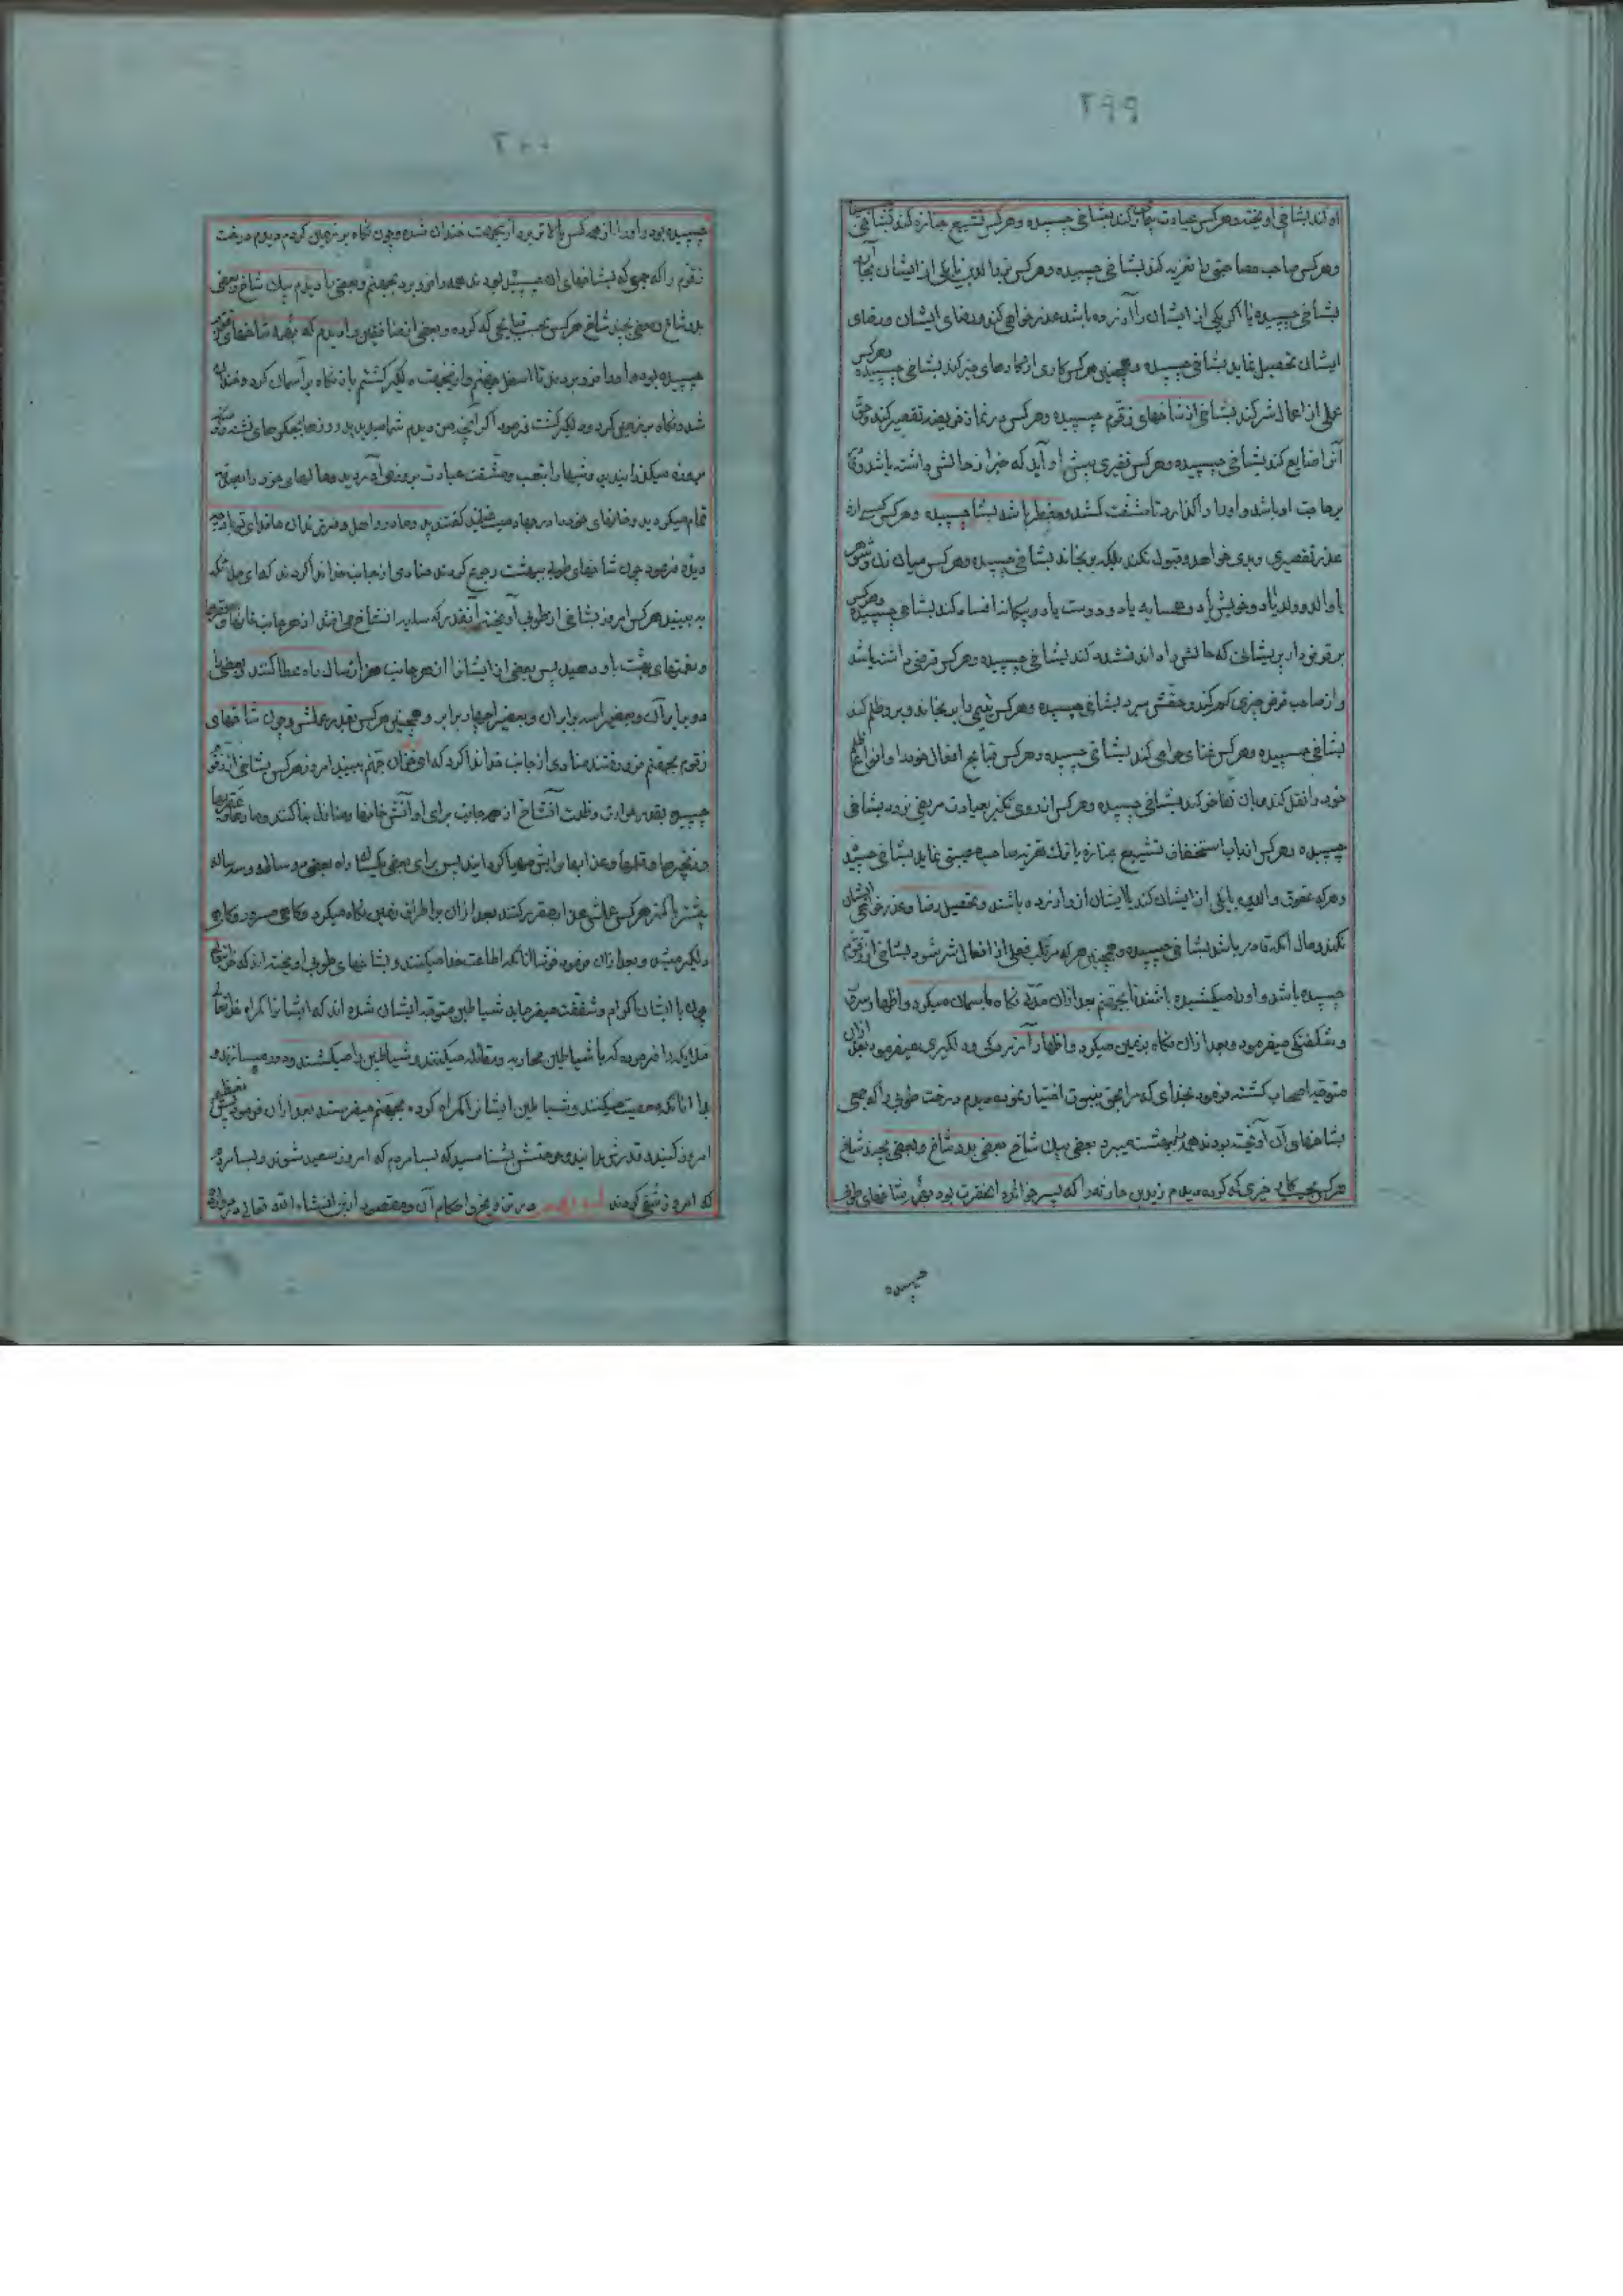 ۲۹۹
او کند بشاخی آویخته و هرکس عیادت بیماری کند بشاخی چسبیده و هرکس تشییع جنازه کند بشاخی
و هرکس صاحب مصاحبتی را تعزیه کند بشاخی چسبیده و هرکس بر والدین یا یکی از ایشان
بشاخی چسبیده یا اگر یکی از ایشان را آزرده باشد عذرخواهی کند و رضای ایشان
ایشان تحصیل نماید بشاخی چسبیده و همچنین هرکس کاری از کارهای خیر کند بشاخی چسبیده و هرکس
عملی از اعمال شر کند بشاخی از شاخهای زقوم چسبیده و هرکس در نماز فریضه تقصیر کند و حق
آنرا ضایع کند بشاخی چسبیده و هرکس فقیری پیش او آید که خبر از حالش داشته باشد و
برحاجت او باشد و او را واگذارد تا مشقت کشد و مضطر باشد بشاخی چسبیده و هرکس
عذر تقصیری و بدی خواهد و قبول نکند بلکه برنجاند بشاخی چسبیده و هرکس میان زن و شوهر
یا والد و ولد یا دو خویش یا دو همسایه یا دو دوست یا دو بیگانه افساد کند بشاخی چسبیده و هرکس
بر قرضدار پریشانی که حالش را داند تشدد کند بشاخی چسبیده و هرکس قرضی داشته باشد
و از صاحب قرض چیزی کم کند و حقش ببرد بشاخی چسبیده و هرکس یتیمی را برنجاند و بر او ظلم کند
بشاخی چسبیده و هرکس غنای حرامی کند بشاخی چسبیده و هرکس قبایح افعال خود را و انواع ظلم
خود را نقل کند و بآن تفاخر کند بشاخی چسبیده و هرکس از روی تکبر بعیادت مریضی نرود بشاخی
چسبیده و هرکس از باب استخفاف تشییع جنازه یا ترک تعزیه صاحب مصیبتی نماید بشاخی چسبیده
و هرکه عقوق والدین یا یکی از ایشان کند یا ایشان از او آزرده باشند و تحصیل رضا و عذرخواهی ایشان
نکند و حال آنکه قادر باشد بشاخی چسبیده و همچنین هرکه مرتکب فعلی از افعال شر شود بشاخی از زقوم
چسبیده باشد و او را میکشیده باشند تا بجهنم بعد از آن مدتی نگاه بآسمان میکرد و اظهار مسرت
و شکفتگی میفرمود و بعد از آن نگاه بزمین میکرد و اظهار آزردگی و دلگیری میفرمود بعد از آن
متوجه اصحاب گشته فرمود بخدای که مرا بحق به نبوت اختیار نموده دیدم درخت طوبی را که جمعی
بشاخهای آن آویخته بودند همه را ببهشت میبرد بعضی بیک شاخ بعضی بدو شاخ و بعضی بچند شاخ
هرکس بحسب کار خیری که کرده و دیدم زید بن حارثه را که پسر خوانده آنحضرت بود بتمام شاخهای طوبی
چسبیده
۳۰۰
چسبیده بود و او را از همه کس بالاتر برد از آنجهت خندان شدم و چون نگاه بر زمین کردم دیدم درخت
زقوم را که جمعی که بشاخهای آن چسبیده بودند همه را فرو برد بجهنم و بعضی را دیدم بیک شاخ و بعضی
بدو شاخ و بعضی بچند شاخ هرکس بحسب قبایحی که کرده و بعضی از منافقین را دیدم که بهمه شاخهای زقوم
چسبیده بود و او را فرو بردند تا اسفل جهنم و از آنجهت دلگیر گشتم باز نگاه بر آسمان کرد و خندان
شد و نگاه بر زمین کرد و دلگیر گشت فرمود اگر آنچه من دیدم شما میدیدید روزها بجگرهای تشنه
بروزه میگذرانیدید و شبها را بتعب و مشقت عبادت بروز می‌آوردید و مالهای خود را بصدقه
تمام میکردید و جانهای خود را در جهاد گفتند پدر و مادر و اهل و فرزندان ما فدای تو باد
فرمود چون شاخهای طوبی ببهشت رجوع کردند منادی از جانب خدا ندا کرد که ای ملائکه
به بینید هرکس امروز بشاخی از طوبی آویخته آنقدر که سایه آن شاخ می‌افتد از هر جانب
و نعمتهای بهشت باو دهید پس بعضی از ایشانرا از هر جانب هزار ساله راه عطا کنند و بعضی را
دو برابر آن و بعضی را سه برابر آن و بعضی را چهار برابر و همچنین هرکس بقدر عملش و چون شاخهای
زقوم بجهنم فرو رفتند منادی از جانب خدا ندا کرد که ای جهنم ببینید امروز هرکس بشاخی از زقوم
چسبیده بقدر عرض و ظلمت آن شاخ از هر جانب برای او از آتش خانها و منازل بنا کنند و مارها و عقربها
و زنجیرها و غلها و عذابها برایش مهیا گردانید پس برای بعضی یکساله راه بعضی دو ساله و سه ساله
بیشتر یا کمتر هرکس عملش عذابها مقرر کنند بعد از آن بر اطراف زمین نگاه میکرد و گاهی مسرور و گاهی
دلگیر میشد و بعد از آن فرمود خوشا آنانکه اطاعت خدا میکنند و بشاخهای طوبی آویخته‌اند که حق تعالی
چون با ایشان اکرام و شفقت میفرماید شیاطین متوجه ایشان شده‌اند که ایشانرا گمراه کنند حق تعالی
ملائکه را فرموده که با شیاطین محاربه و مقاتله میکنند و شیاطین را میکشند و دور میسازند و
بدا آنانکه معصیت میکنند و شیاطین ایشانرا گمراه کرده بجهنم میفرستند بعد از آن فرمود پس تعظیم
امروز کنید و قدرش بدانید و حرمتش بشناسید که بسا مردم که امروز سعید شوند و بسا مردم
که امروز شقی گردند در تزویج و احکام آن و مقصود ازین انشاء الله تعالی